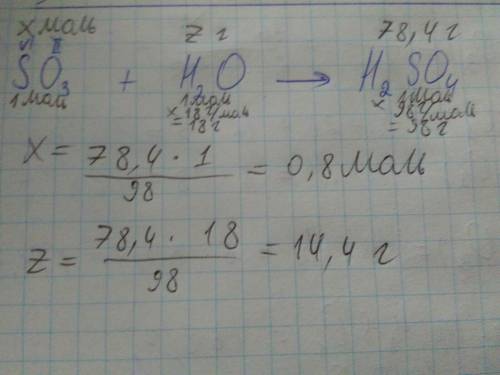 x моль z г 78,4 г
VI II
SO₃ + H₂O → H₂SO₄
1 моль 1 моль 1 моль
× 18 г/моль × 98 г/моль
= 18 г = 98 г
X = 78,4 · 1 / 98 = 0,8 моль
Z = 78,4 · 18 / 98 = 14,4 г